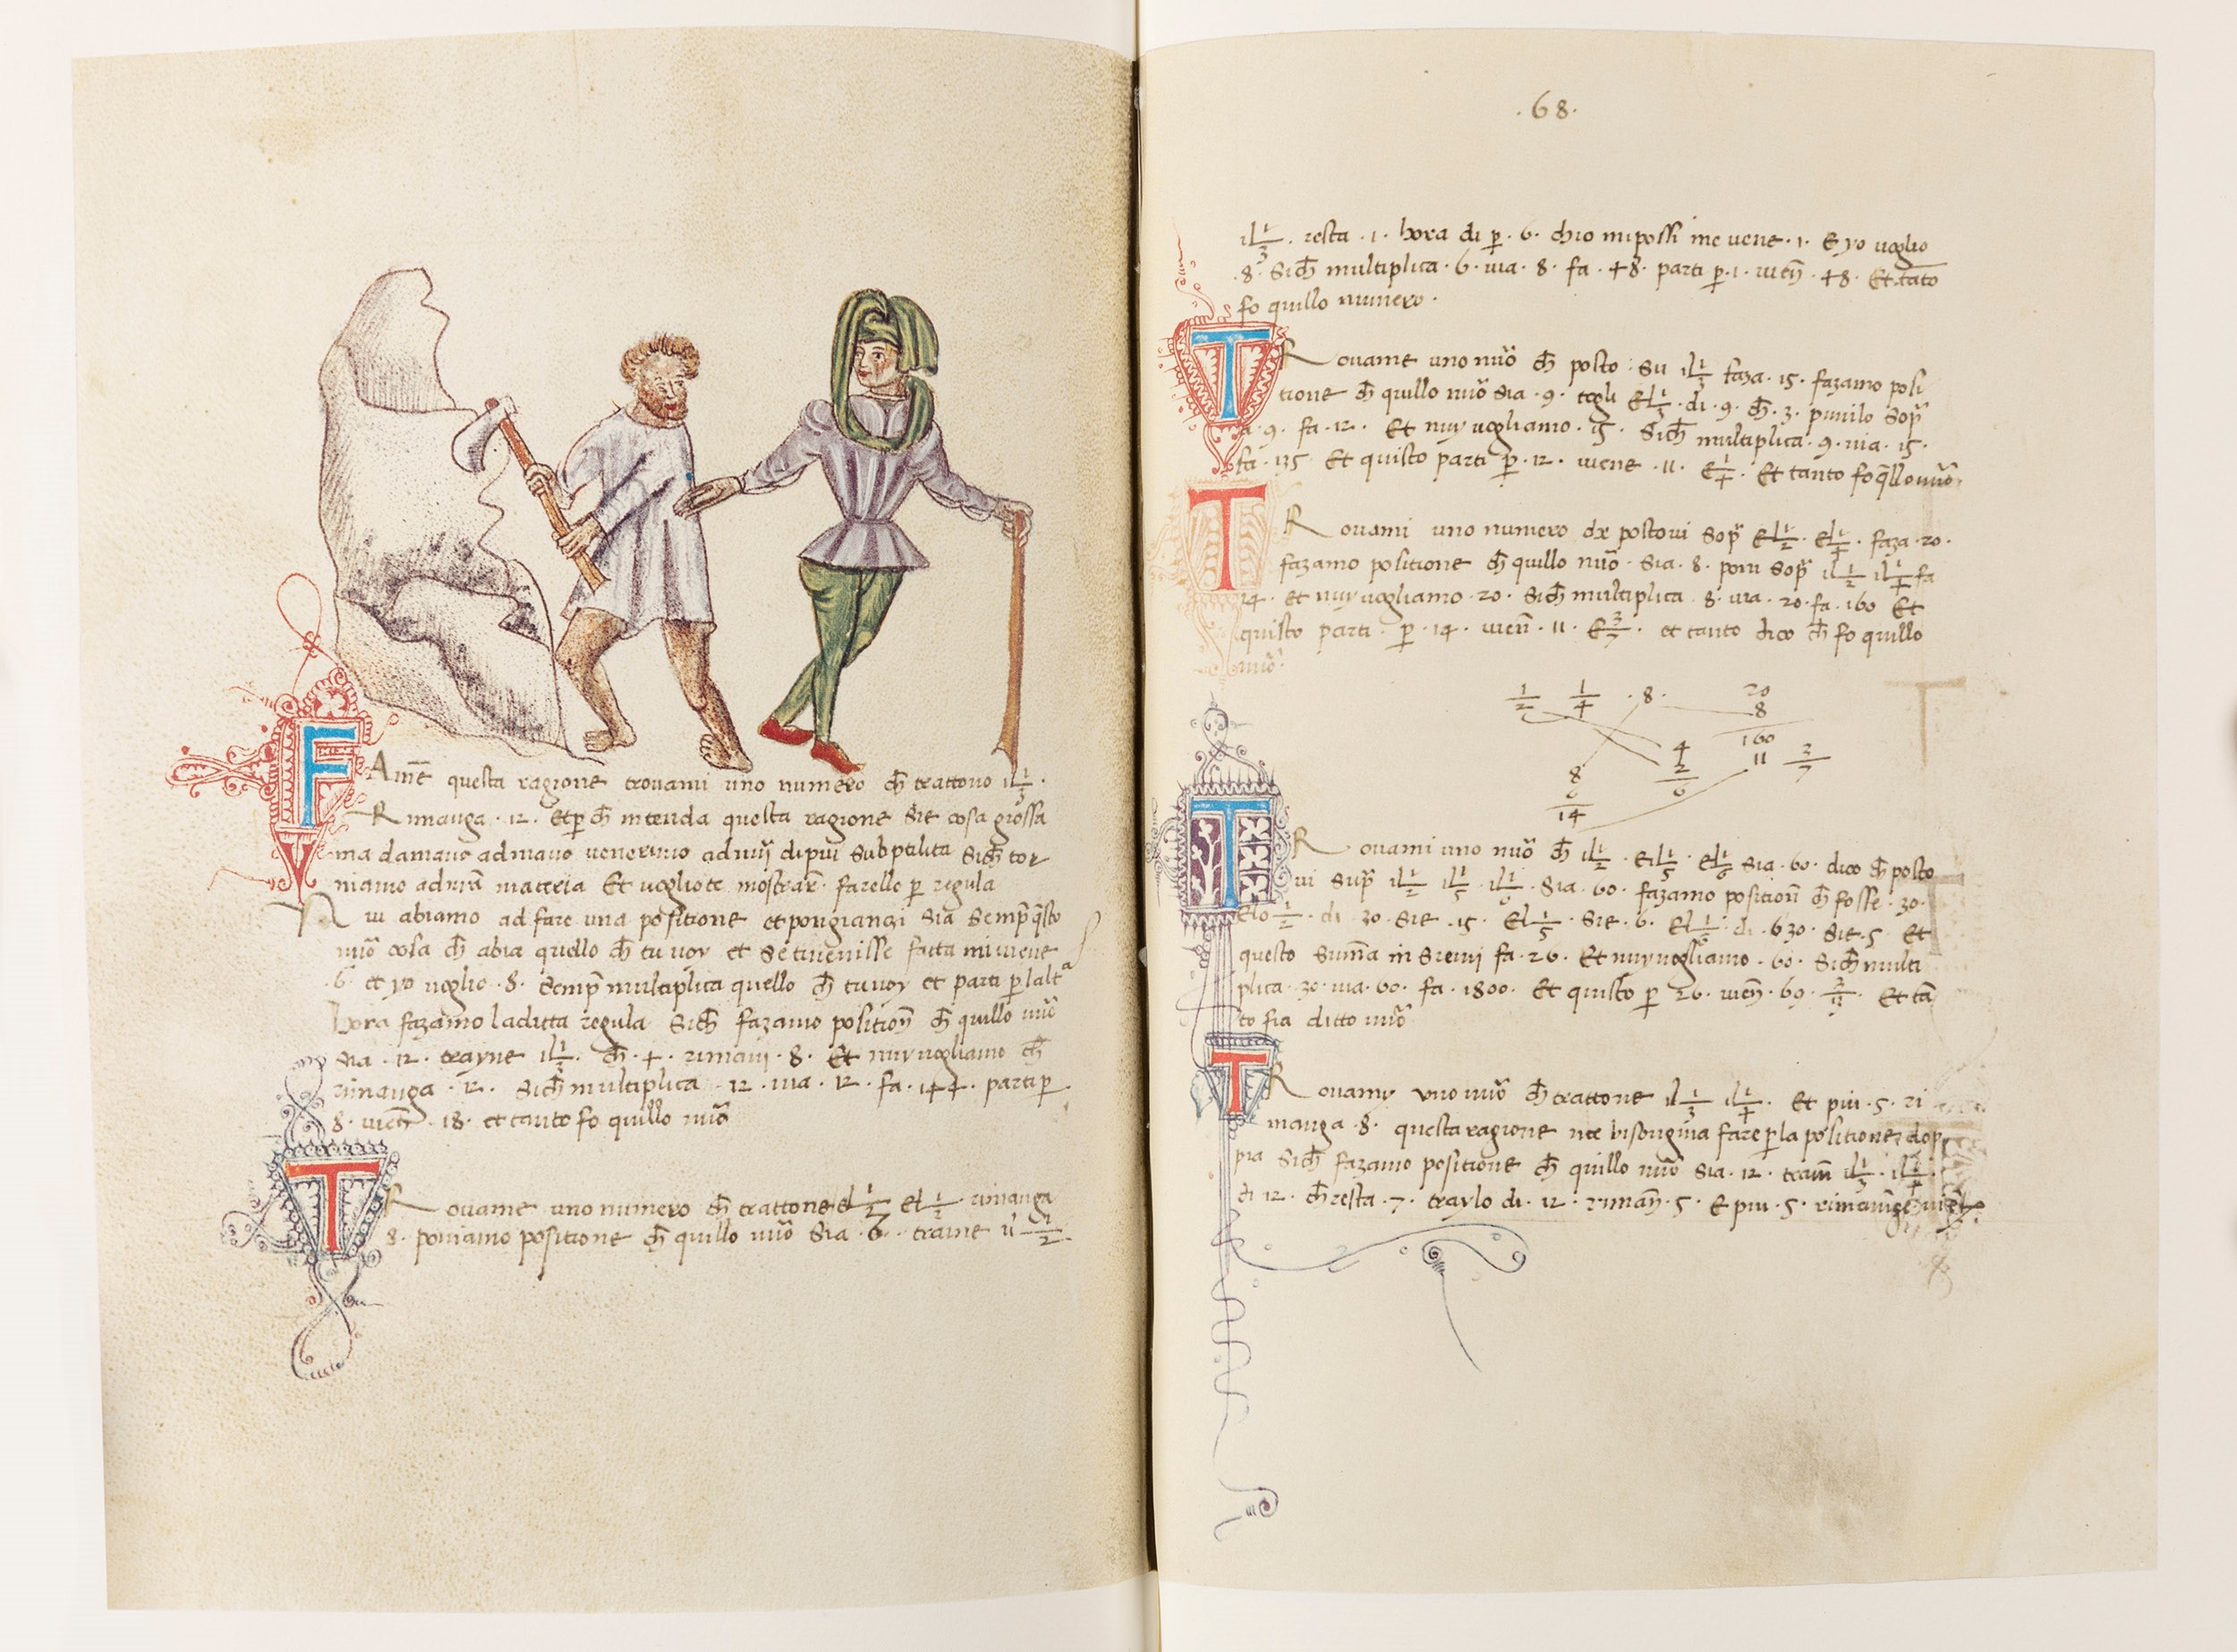 FAme questa ragione trovami uno numero ch̄ trattone il 1/3 .
Rimanga · 12 · et ꝑ ch̄ intenda questa ragione sie cosa grossa
ma damano admano veneremo adpiui subptilita sich̄ tor
niamo ad materia Et vogliote mostrar farello ꝑ regula
Nui abiamo ad fare una positione et pongianzi sia semp̄ q̄sto
nuō cosa ch̄ abia quello ch̄ tu voy et setuvenisse facta mi viene
· 6 · et yo voglio · 8 · semp̄ multiplica quello ch̄ tu voy et parti ꝑ laltᵃ
hora fazamo la ditta regula sich̄ fazamo position̄ ch̄ quillo nuō
sia · 12 · trayne il 1/3 · ch̄ · 4 · rimani · 8 · Et nuy vogliamo ch̄
rimanga · 12 · sich̄ multiplica · 12 · via · 12 · fa · 144 · parti ꝑ
8 · vien̄ · 18 · et tanto fo quillo nuō
TRovame uno numero ch̄ trattone el 1/2 el 1/3 rimanga
8 · poniamo positione ch̄ quillo nuō sia · 6 · traine il 1/2 ·
· 68 ·
il 1/3 · resta · 1 · hora di ꝑ · 6 · chio mi possi me vene · 1 · E yo voglio
· 8 · Sich̄ multiplica · 6 · via · 8 · fa · 48 · parti ꝑ · 1 · vien̄ · 48 · Et tāto
fo quillo numero ·
TRovame uno nuō ch̄ posto · su il 1/3 faza · 15 · fazamo posi
tione ch̄ quillo nuō sia · 9 · togli el 1/3 · di · 9 · ch̄ · 3 · punilo sop̄
a · 9 · fa · 12 · Et nuy vogliamo · 15 · Sich̄ multiplica · 9 · via · 15 ·
fa · 135 · Et quisto parti ꝑ · 12 · viene · 11 · e 1/4 · Et tanto fo q̄llo nuō ·
TRovami uno numero ch̄ postovi sop̄ el 1/2 · el 1/4 · faza · 20 ·
fazamo positione ch̄ quillo nuō · sia · 8 · poni sop̄ il 1/2 il 1/4 fa
14 · et nuy vogliamo · 20 · Sich̄ multiplica · 8 · via · 20 · fa · 160 Et
quisto parti · ꝑ · 14 · vien̄ · 11 · e 3/7 · et tanto dico ch̄ fo quillo
nuō ·
1/2 1/4 · 8 · 20
8
160
4 11 3/7
8 2
6 6
14
TRovami uno nuō ch̄ il 1/2 · e il 1/5 · el 1/6 sia · 60 · dico ch̄ posto
vi sup̄ il 1/2 il 1/5 · il 1/6 · sia · 60 · fazamo position̄ ch̄ fosse · 30 ·
elo 1/2 · di · 30 · sie · 15 · el 1/5 · sie · 6 · el 1/6 · di · 630 · sie · 5 Et
questo sum̄a insiemi fa · 26 · Et nuy vogliamo · 60 · Sich̄ multi
plica · 30 · via · 60 · fa · 1800 · Et quisto ꝑ 26 · vien̄ · 69 · 3/13 · Et tā
to fia ditto nuō
TRovamy uno nuō ch̄ trattone il 1/3 il 1/4 · Et piu · 5 · ri
manga · 8 · questa ragione me bisongnia fare ꝑ la positione dop
pia Sich̄ fazamo positione ch̄ quillo nuō sia · 12 · train̄ il 1/3 · il 1/4
di 12 · ch̄ resta · 7 · traylo di · 12 · riman̄ · 5 · e piu · 5 ·